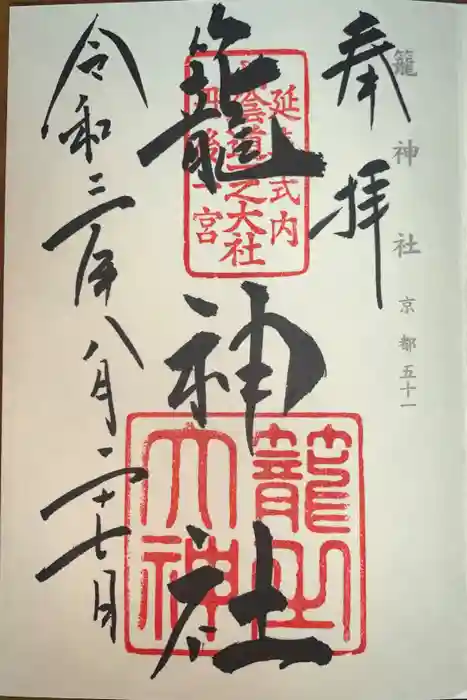 籠神社 京都五十一
奉拝
籠神社
延喜式内
山陰道一之大社
丹後一宮
籠之
大神
令和三年八月二十七日